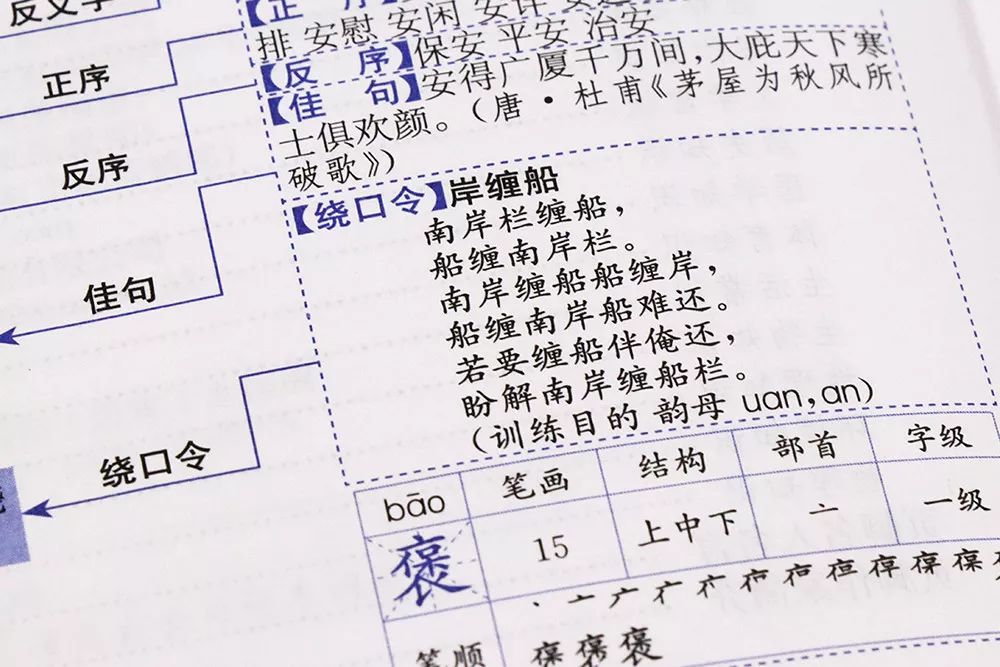 反义字
正序
反序
佳句
绕口令
【正 序】
排 安慰 安闲
【反 序】保安 平安 治安
【佳 句】安得广厦千万间,大庇天下寒
士俱欢颜。(唐·杜甫《茅屋为秋风所
破歌》)
【绕口令】岸缠船
南岸栏缠船,
船缠南岸栏。
南岸缠船船缠岸,
船缠南岸船难还。
若要缠船伴俺还,
盼解南岸缠船栏。
(训练目的 韵母 uan,an)
bāo 笔画 结构 部首 字级
褒 15 上中下 亠 一级
笔顺